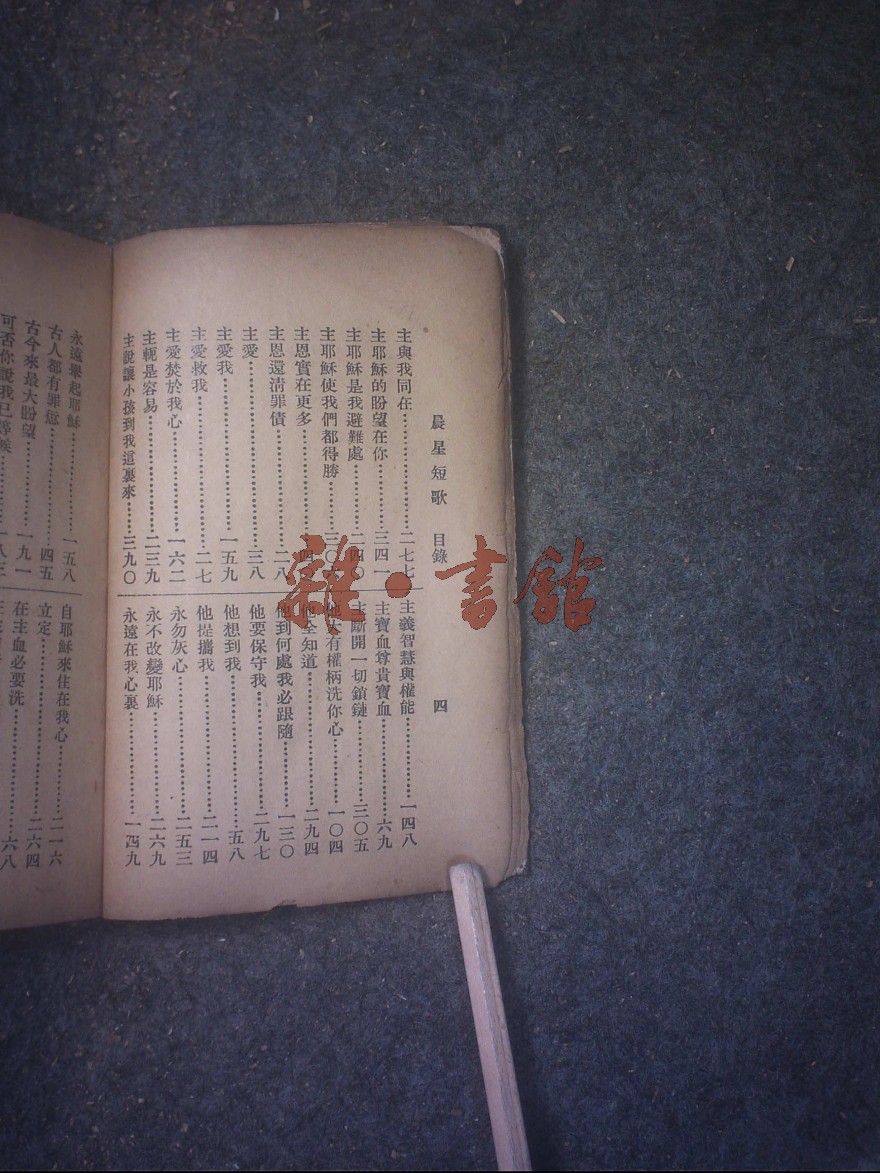 晨星短歌 目錄 四
主與我同在 二七七
主耶穌的盼望在你 三四一
主耶穌是我避難處 二四〇
主耶穌使我們都得勝 三〇
主恩實在更多 四
主恩還清罪債 二八
主愛 三八
主愛我 一五九
主愛救我 二七
主愛焚於我心 一六二
主軛是容易 二三九
主說讓小孩到我這裏來 三九〇
主義智慧與權能 一四八
主寶血尊貴寶血 六九
主斷開一切鎖鏈 三〇五
他大有權柄洗你心 一〇四
他全知道 二九四
他到何處我必跟隨 一三〇
他要保守我 二九七
他想到我 五八
他提攜我 二一四
永勿灰心 二五三
永不改變耶穌 二六九
永遠在我心裏 一四九
永遠舉起耶穌 一五八
古人都有罪愆 四五
古今來最大盼望 一九一
可否你說我已等候 一八三
自耶穌來住在我心 二一六
立定 二六四
在主血必要洗 六八
雜·書館